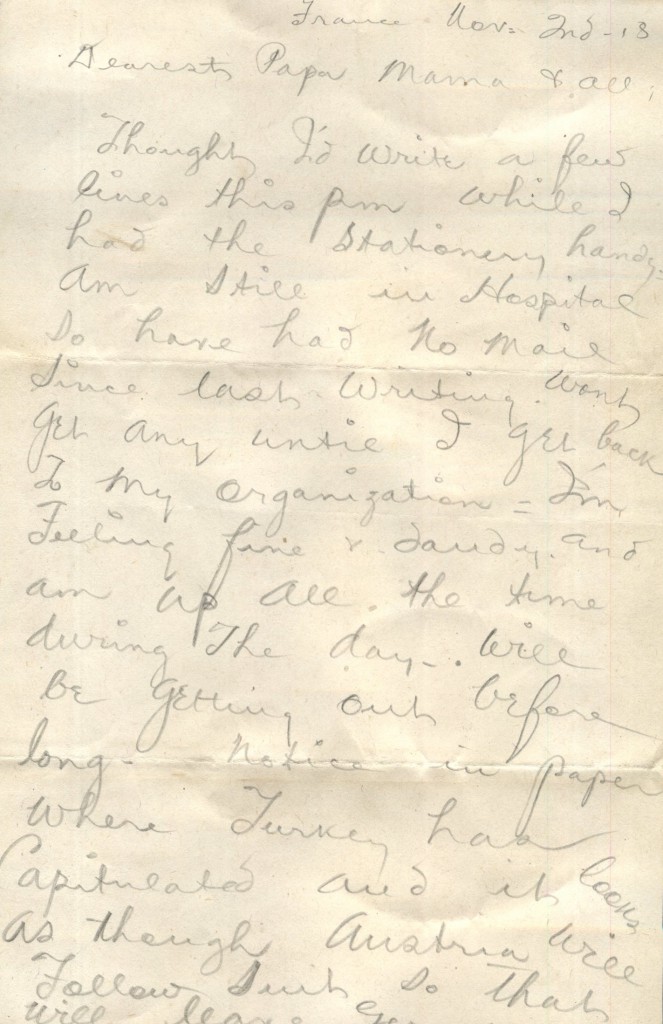 France Nov. 2nd-18
Dearest Papa Mama & all,
Thought I'd write a few
lines this pm while I
had the Stationery handy-
Am Still in Hospital
So have had No Mail
Since last Writing. Wont
Get Any until I Get back
To My Organization = I'm
Feeling fine & dandy. And
am up All the time
during The day-. Will
Be Getting out before
long- Notice in paper
Where Turkey has
Capitulated and it looks
As though Austria Will
Follow Suit So That
Will leave